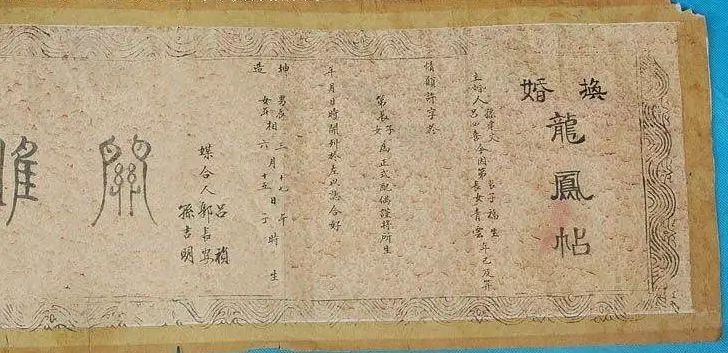 換婚
龍鳳帖
長子福生
立婚人呂 今因第長女青雲年已及笄
情願許字於
第長子女為正式配偶謹將所生
年月日時開列於左以誌合好
坤造 男 女 相 三六月十九十五日午子時生
媒合人
呂禎
郭長安
孫吉明
關雎